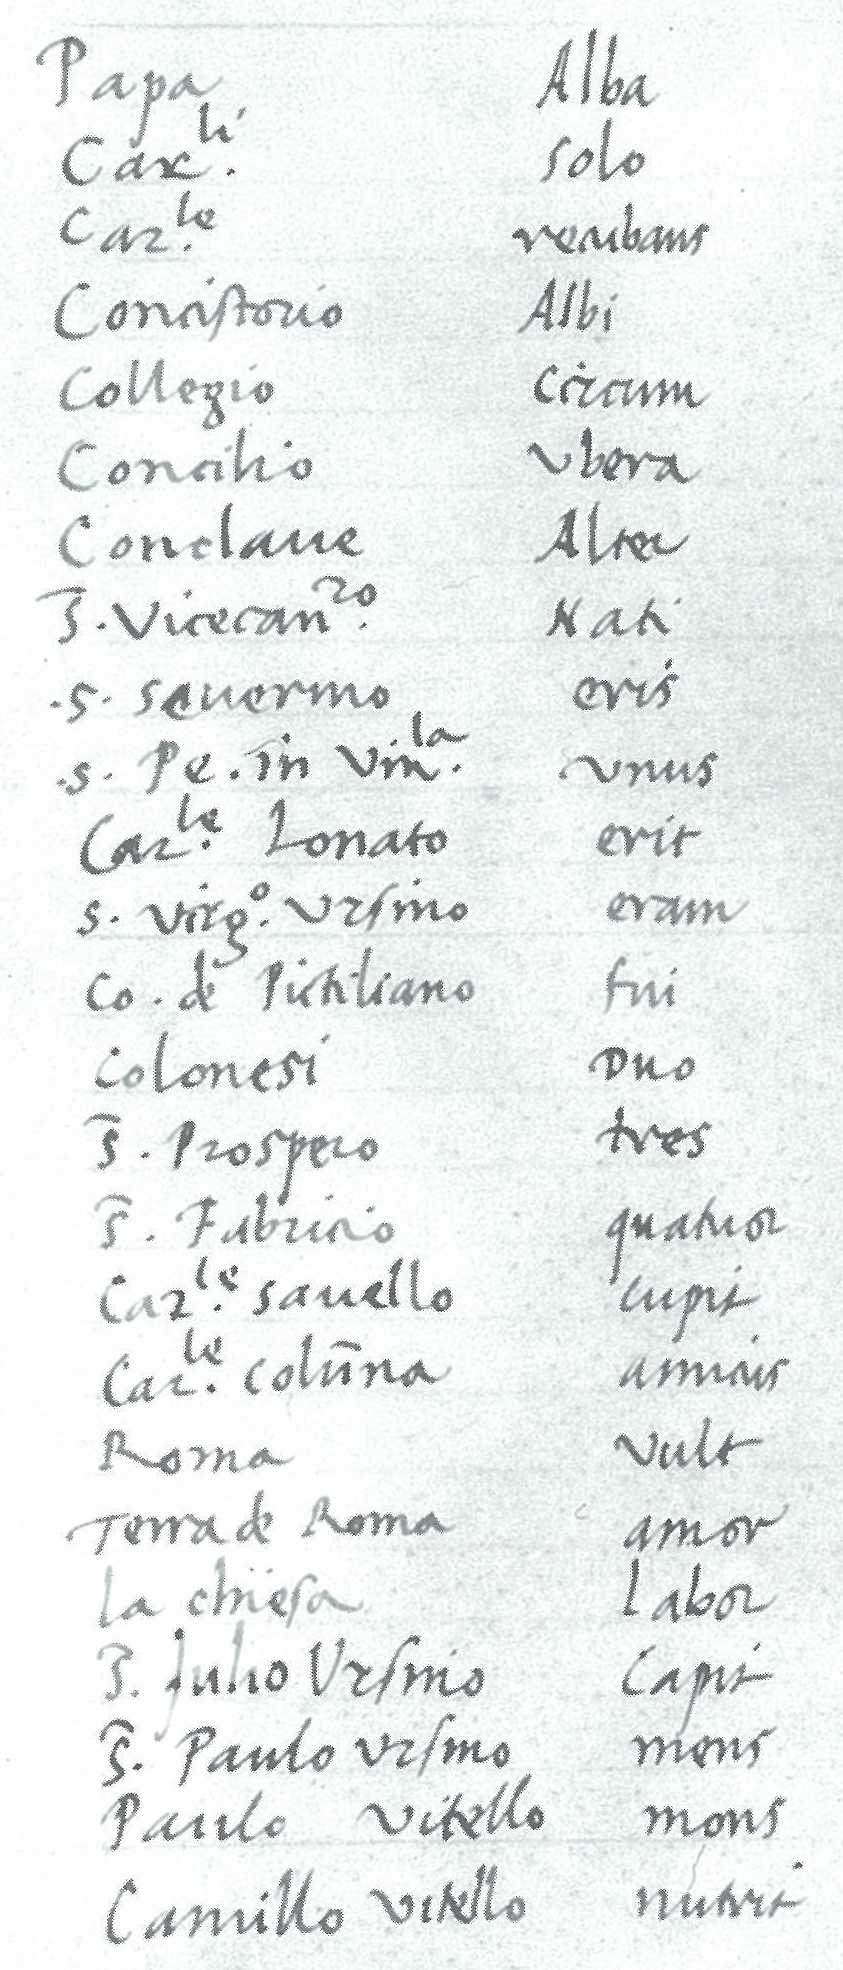 Papa Alba
Car.li solo
Car.le recubans
Concistorio Albi
Collegio circum
Concilio Vbera
Conclaue Alter
S. Vicecan.ro Nati
.S. Seuerino eris
.S. Pe. in Vin.la vnus
Car.le Lonato erit
S. Virg.o Vrsino eram
Co. de Pithiliano fui
Colonesi Duo
S. Prospero tres
S. Fabricio quatuor
Car.le Sauello cupit
Car.le Colūna amicis
Roma Vult
Terra de Roma amor
la chiesa Labor
S. Julio Vrsino Capit
S. Paulo Vrsino mens
Paulo Vitello mons
Camillo Vitello nutrit